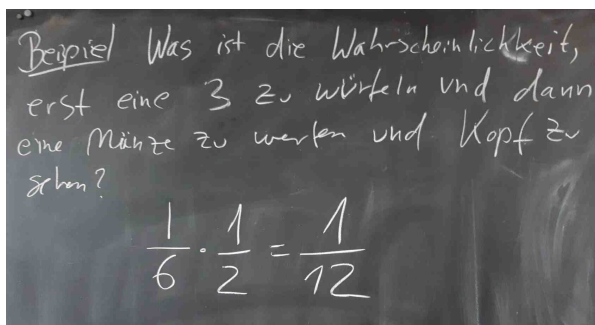 Beispiel Was ist die Wahrscheinlichkeit,
erst eine 3 zu würfeln und dann
eine Münze zu werfen und Kopf zu
sehen?
1/6 · 1/2 = 1/12